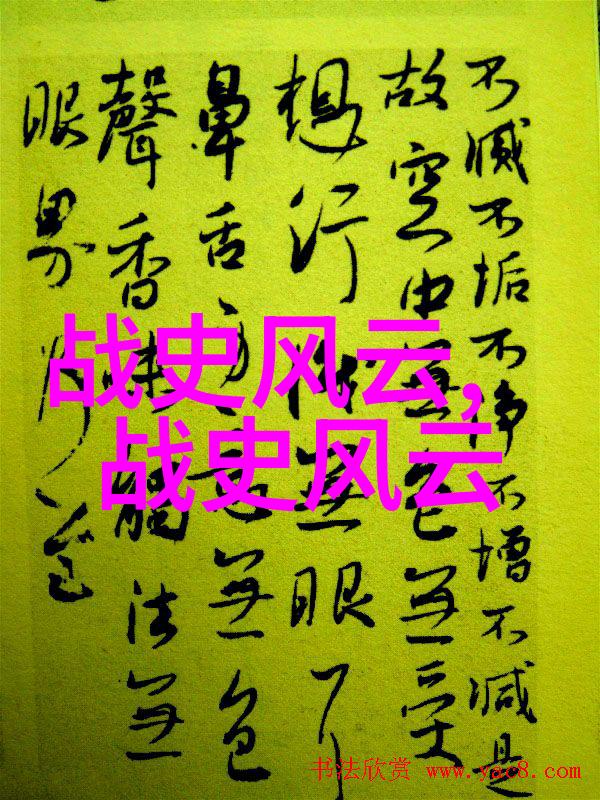 不滅不垢不净不增不减是
故空中無色無受
想行無眼耳
鼻舌無色
聲香味觸法無
眼界乃至
战史风云,
战史风云
书法欣赏 www.yac8.com